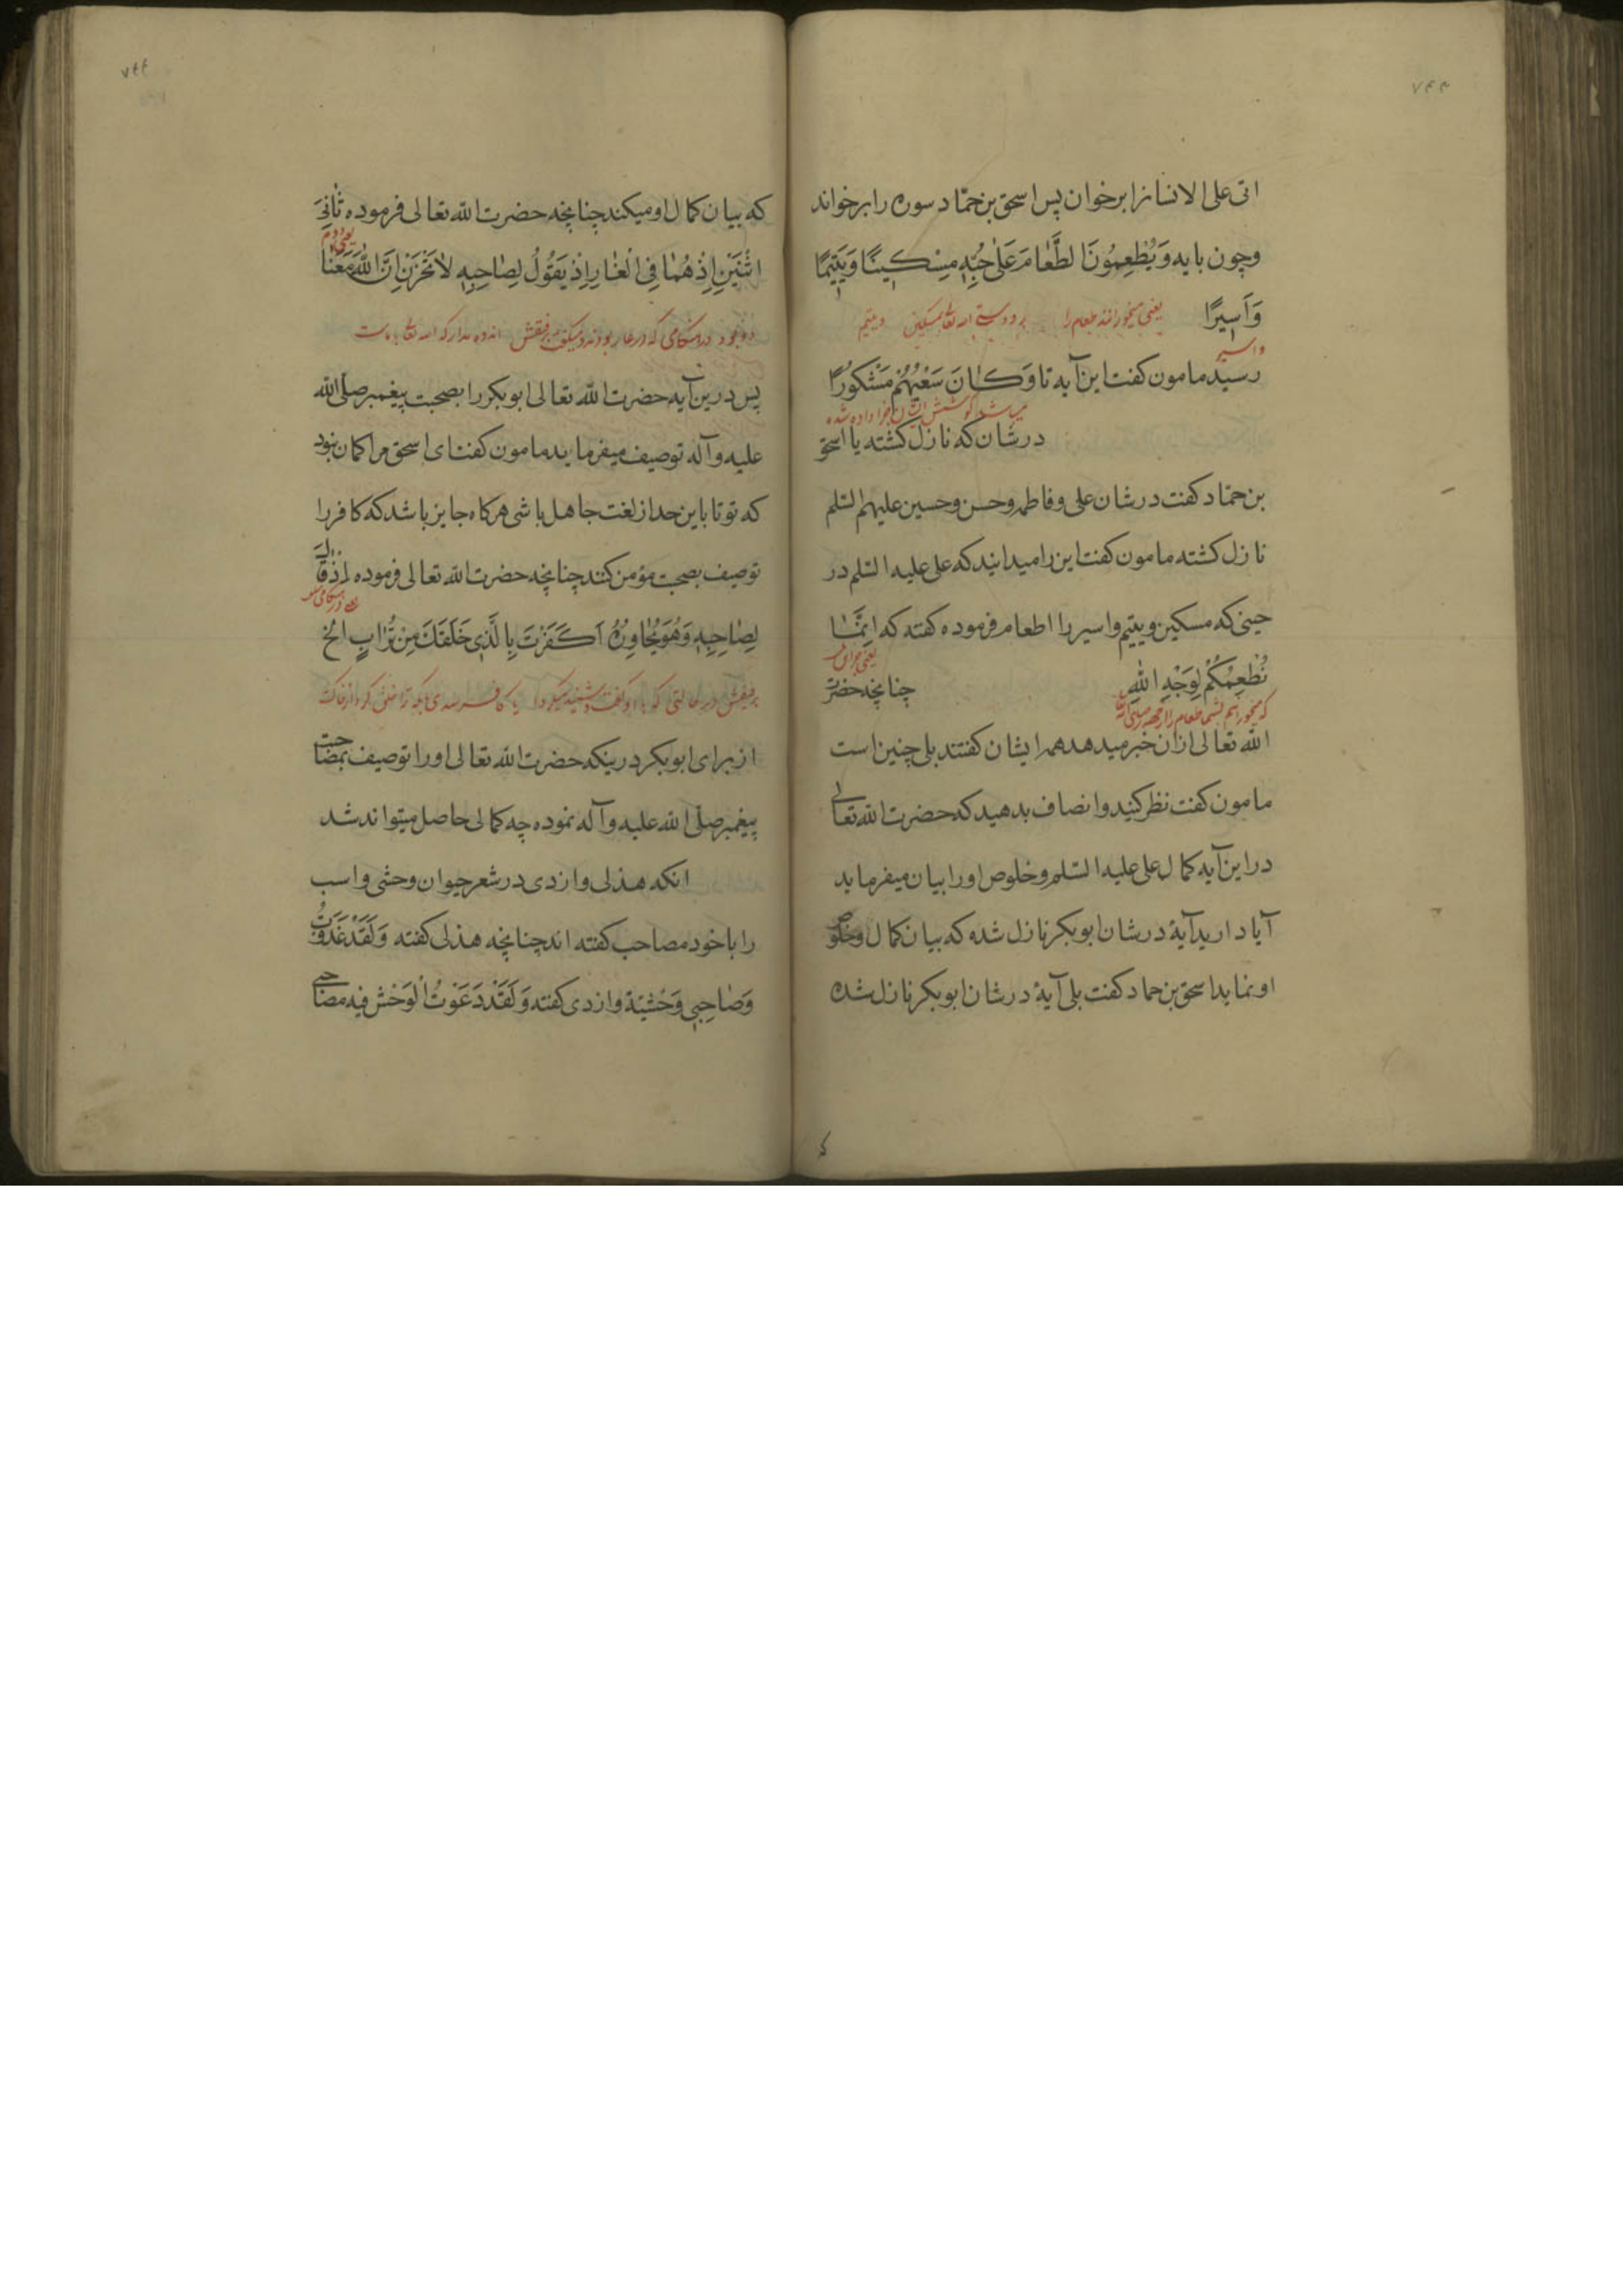 ۷۴۳
اتی علی الانسانرا برخوان پس اسحق بن حمّاد سوره را برخواند
وچون بایه وَیُطْعِمُونَ الطَّعٰامَ عَلٰی حُبِّهِ مِسْکِینًا وَیَتِیمًا
وَاَسِیرًا یعنی میخورانند طعام را بر دوستی الله تعالی مسکین ویتیم
واسیر
رسید مامون کفت این آیه تا وَکٰانَ سَعْیُهُمْ مَشْکُورًا
میباشد کوشش ایشان جزا داده شده
درشان که نازل کشته یا اسحق
بن حمّاد کفت درشان علی وفاطمه وحسن وحسین علیهم السّلم
نازل کشته مامون کفت این را میدانید که علی علیه السّلم در
حینی که مسکین ویتیم واسیر را اطعام فرموده کفته که اِنَّمٰا
یعنی جز این
نُطْعِمُکُمْ لِوَجْهِ اللّٰهِ چنانچه حضرت
که میخورانیم بشما طعام را از جهة رضای الله
اللّه تعالی ازان خبر میدهد همه ایشان کفتند بلی چنین است
مامون کفت نظر کنید وانصاف بدهید که حضرت اللّه تعالی
در این آیه کمال علی علیه السّلم وخلوص او را بیان میفرماید
آیا دارید آیۀ درشان ابوبکر نازل شده که بیان کمال وخلوص
او نماید اسحق بن حماد کفت بلی آیۀ درشان ابوبکر نازل شده
۷۴۴
که بیان کمال او میکند چنانچه حضرت اللّه تعالی فرموده ثٰانِیَ
یعنی دوم
اثْنَیْنِ اِذْ هُمٰا فِی الْغٰارِ اِذْ یَقُولُ لِصٰاحِبِهِ لٰا تَحْزَنْ اِنَّ اللّٰهَ مَعَنٰا
دو بود در هنکامی که در غار بودند میکفت برفیقش اندوه مدار که الله تعالی با ماست
پس درین آیه حضرت اللّه تعالی ابوبکر را بصحبت پیغمبر صلّی اللّه
علیه وآله توصیف میفرماید مامون کفت ای اسحق مرا کمان نبود
که تو تا باین حد از لغت جاهل باشی هرکاه جایز باشد که کافر را
توصیف بصحبت مؤمن کنند چنانچه حضرت اللّه تعالی فرموده اِذْ قٰالَ
لِصٰاحِبِهِ وَهُوَ یُحٰاوِرُهُ اَکَفَرْتَ بِالَّذِی خَلَقَکَ مِنْ تُرٰابٍ الخ
برفیقش در حالتی که با او کفت وشنید میکرد آیا کافر شدی بآنکه ترا خلق کرد از خاک
از برای ابوبکر درینکه حضرت اللّه تعالی او را توصیف بمصاحبت
پیغمبر صلّی اللّه علیه وآله نموده چه کمالی حاصل میتواند شد
انکه هذلی وازدی در شعر حیوان وحشی واسب
را با خود مصاحب کفته اند چنانچه هذلی کفته وَلَقَدْ غَدَوْتُ
وَصٰاحِبِی وَحْشِیَّة وازدی کفته وَلَقَدْ دَعَوْتُ الْوَحْشَ فِیهِ مصاحبی